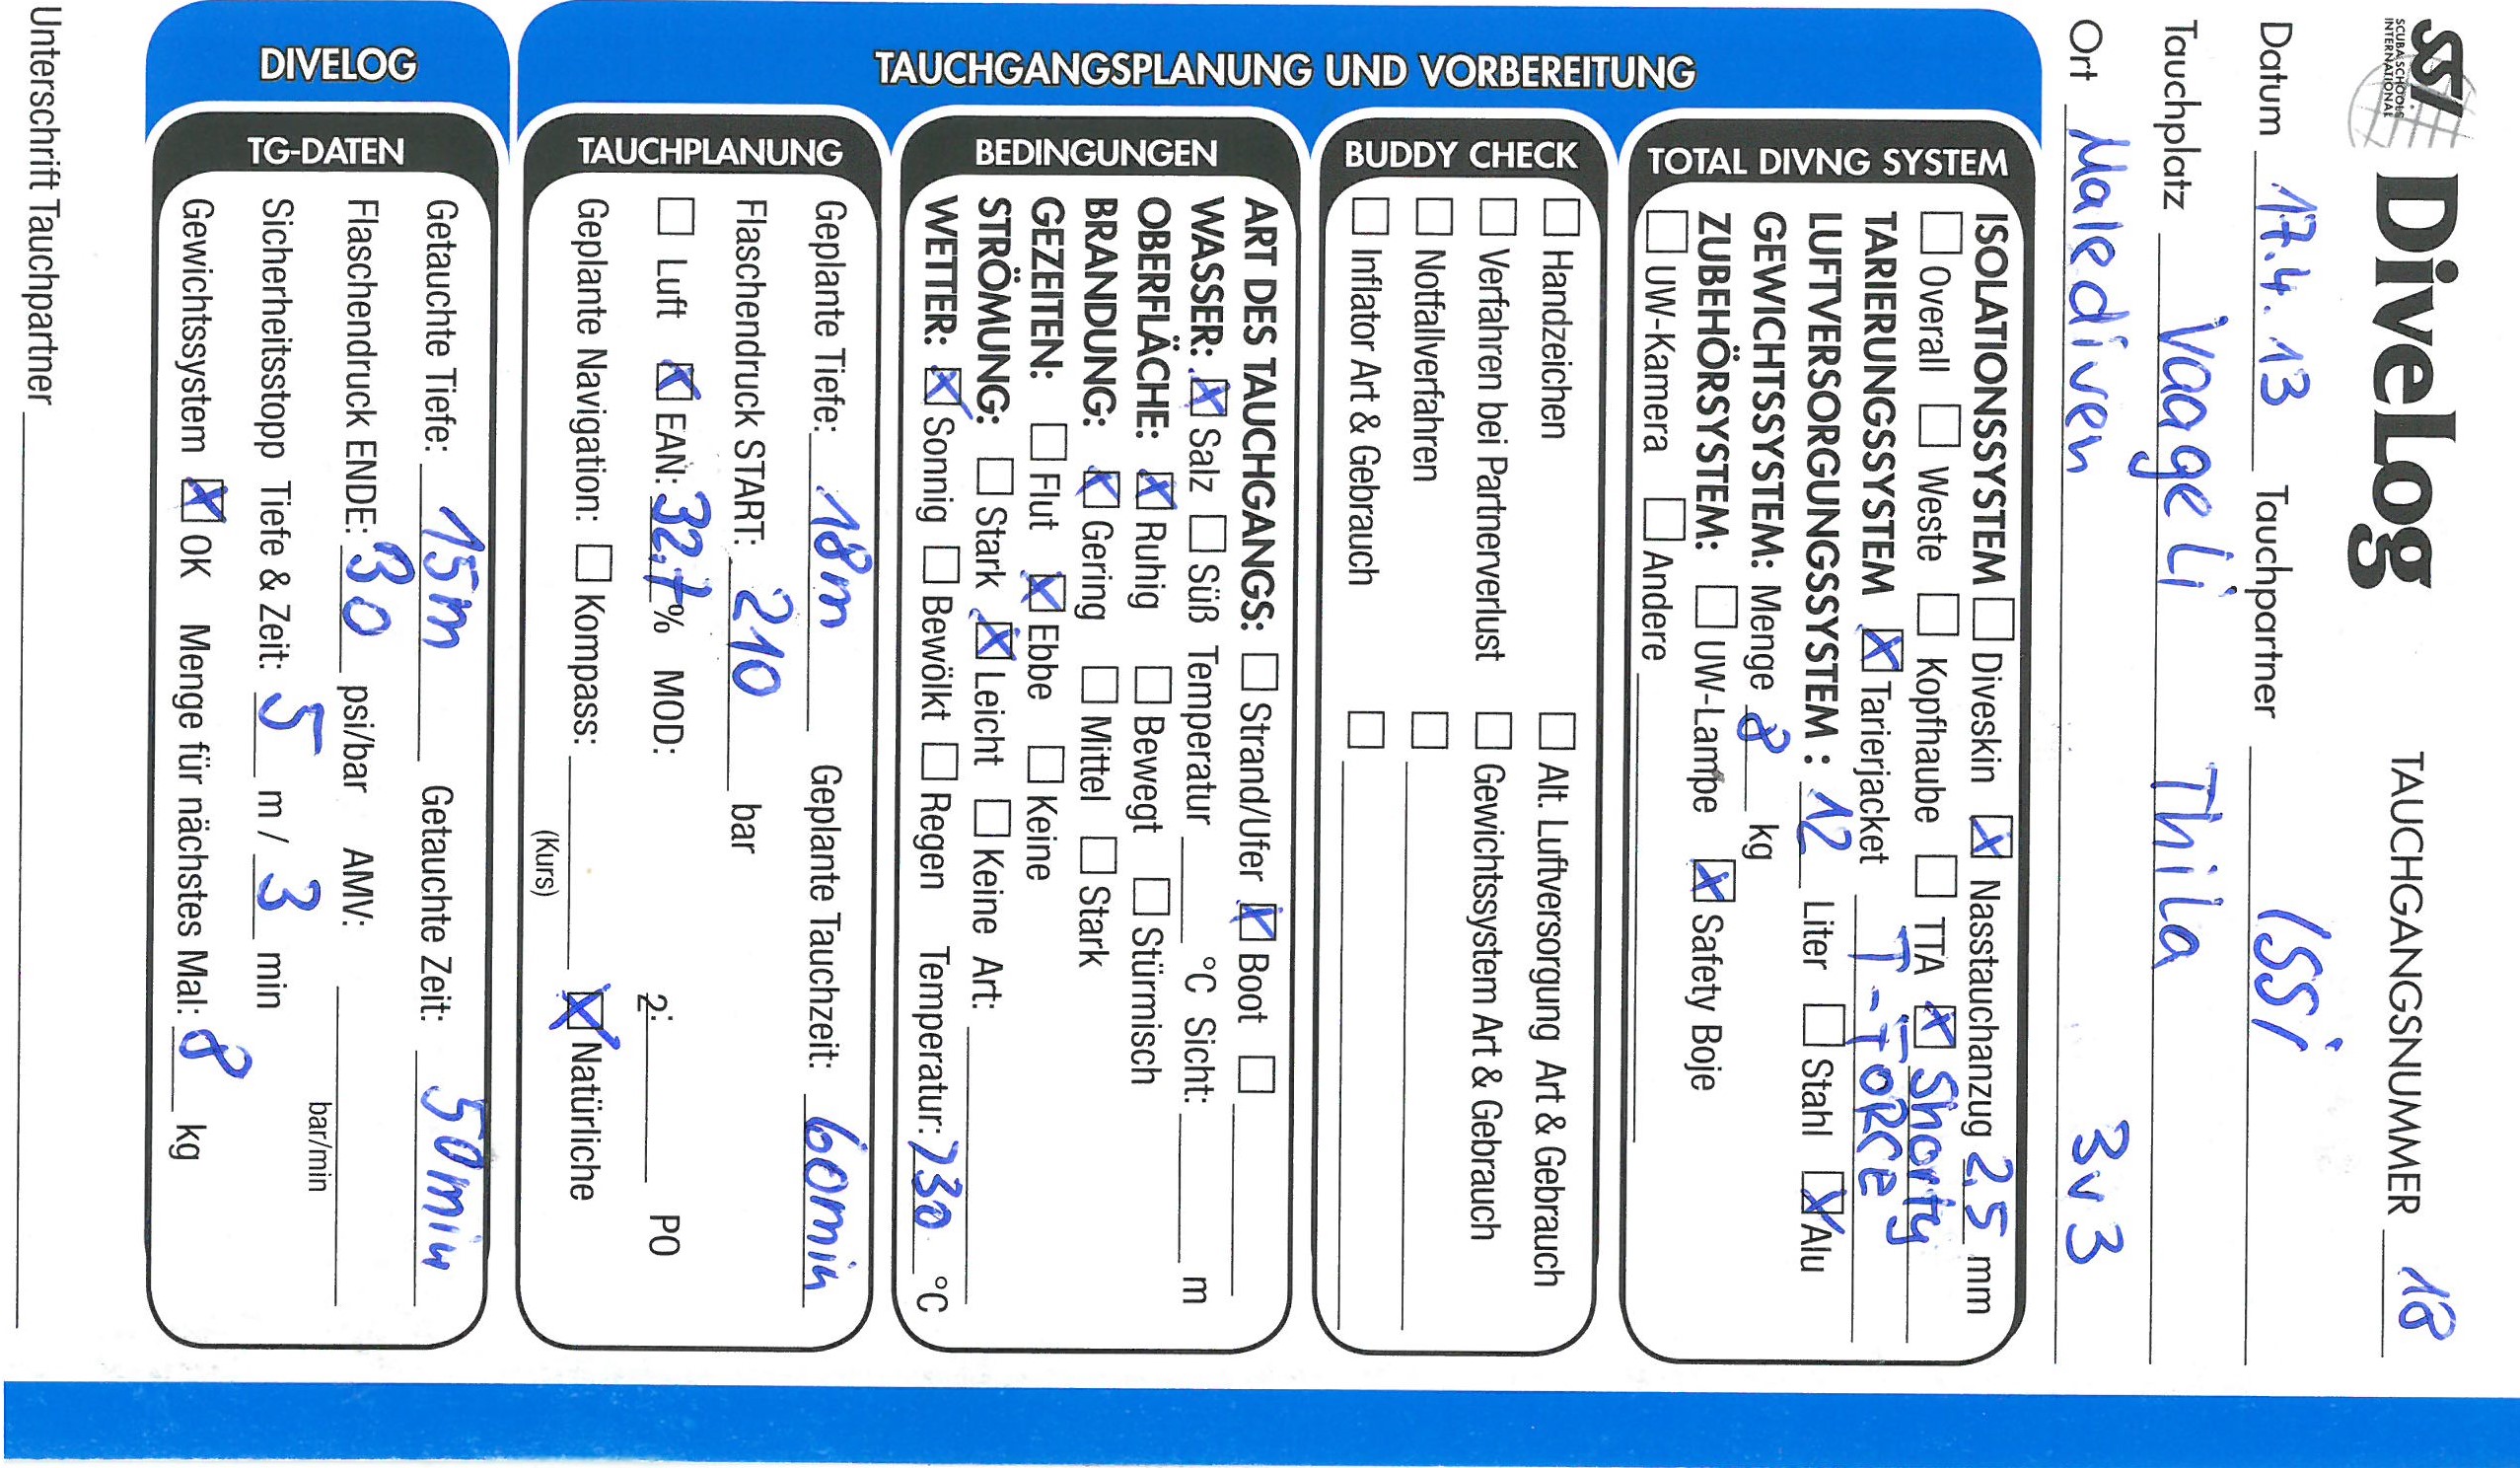 SSI SCUBA SCHOOLS INTERNATIONAL DiveLog TAUCHGANGSNUMMER 18
Datum 17.4.13 Tauchpartner Issi
Tauchplatz Vaageli Thila
Ort Malediven 3v3
TAUCHGANGSPLANUNG UND VORBEREITUNG
TOTAL DIVNG SYSTEM
ISOLATIONSSYSTEM ☐ Diveskin ☒ Nasstauchanzug 2,5 mm
☐ Overall ☐ Weste ☐ Kopfhaube ☐ TTA ☒ Shorty
TARIERUNGSSYSTEM ☒ Tarierjacket T-FORCE
LUFTVERSORGUNGSSYSTEM : 12 Liter ☐ Stahl ☒ Alu
GEWICHTSSYSTEM: Menge 8 kg
ZUBEHÖRSYSTEM: ☐ UW-Lampe ☒ Safety Boje
☐ UW-Kamera ☐ Andere
BUDDY CHECK
☐ Handzeichen ☐ Alt. Luftversorgung Art & Gebrauch
☐ Verfahren bei Partnerverlust ☐ Gewichtssystem Art & Gebrauch
☐ Notfallverfahren ☐
☐ Inflator Art & Gebrauch ☐
BEDINGUNGEN
ART DES TAUCHGANGS: ☐ Strand/Ufer ☒ Boot ☐
WASSER: ☒ Salz ☐ Süß Temperatur °C Sicht: m
OBERFLÄCHE: ☒ Ruhig ☐ Bewegt ☐ Stürmisch
BRANDUNG: ☒ Gering ☐ Mittel ☐ Stark
GEZEITEN: ☐ Flut ☒ Ebbe ☐ Keine
STRÖMUNG: ☐ Stark ☒ Leicht ☐ Keine Art:
WETTER: ☒ Sonnig ☐ Bewölkt ☐ Regen Temperatur: >30 °C
TAUCHPLANUNG
Geplante Tiefe: 18m Geplante Tauchzeit: 60min
Flaschendruck START: 210 bar
☐ Luft ☒ EAN: 32,7% MOD: 2: PO
Geplante Navigation: ☐ Kompass: ☒ Natürliche
(Kurs)
DIVELOG
TG-DATEN
Getauchte Tiefe: 15m Getauchte Zeit: 50min
Flaschendruck ENDE: 30 psi/bar AMV: bar/min
Sicherheitsstopp Tiefe & Zeit: 5 m / 3 min
Gewichtssystem ☒ OK Menge für nächstes Mal: 8 kg
Unterschrift Tauchpartner